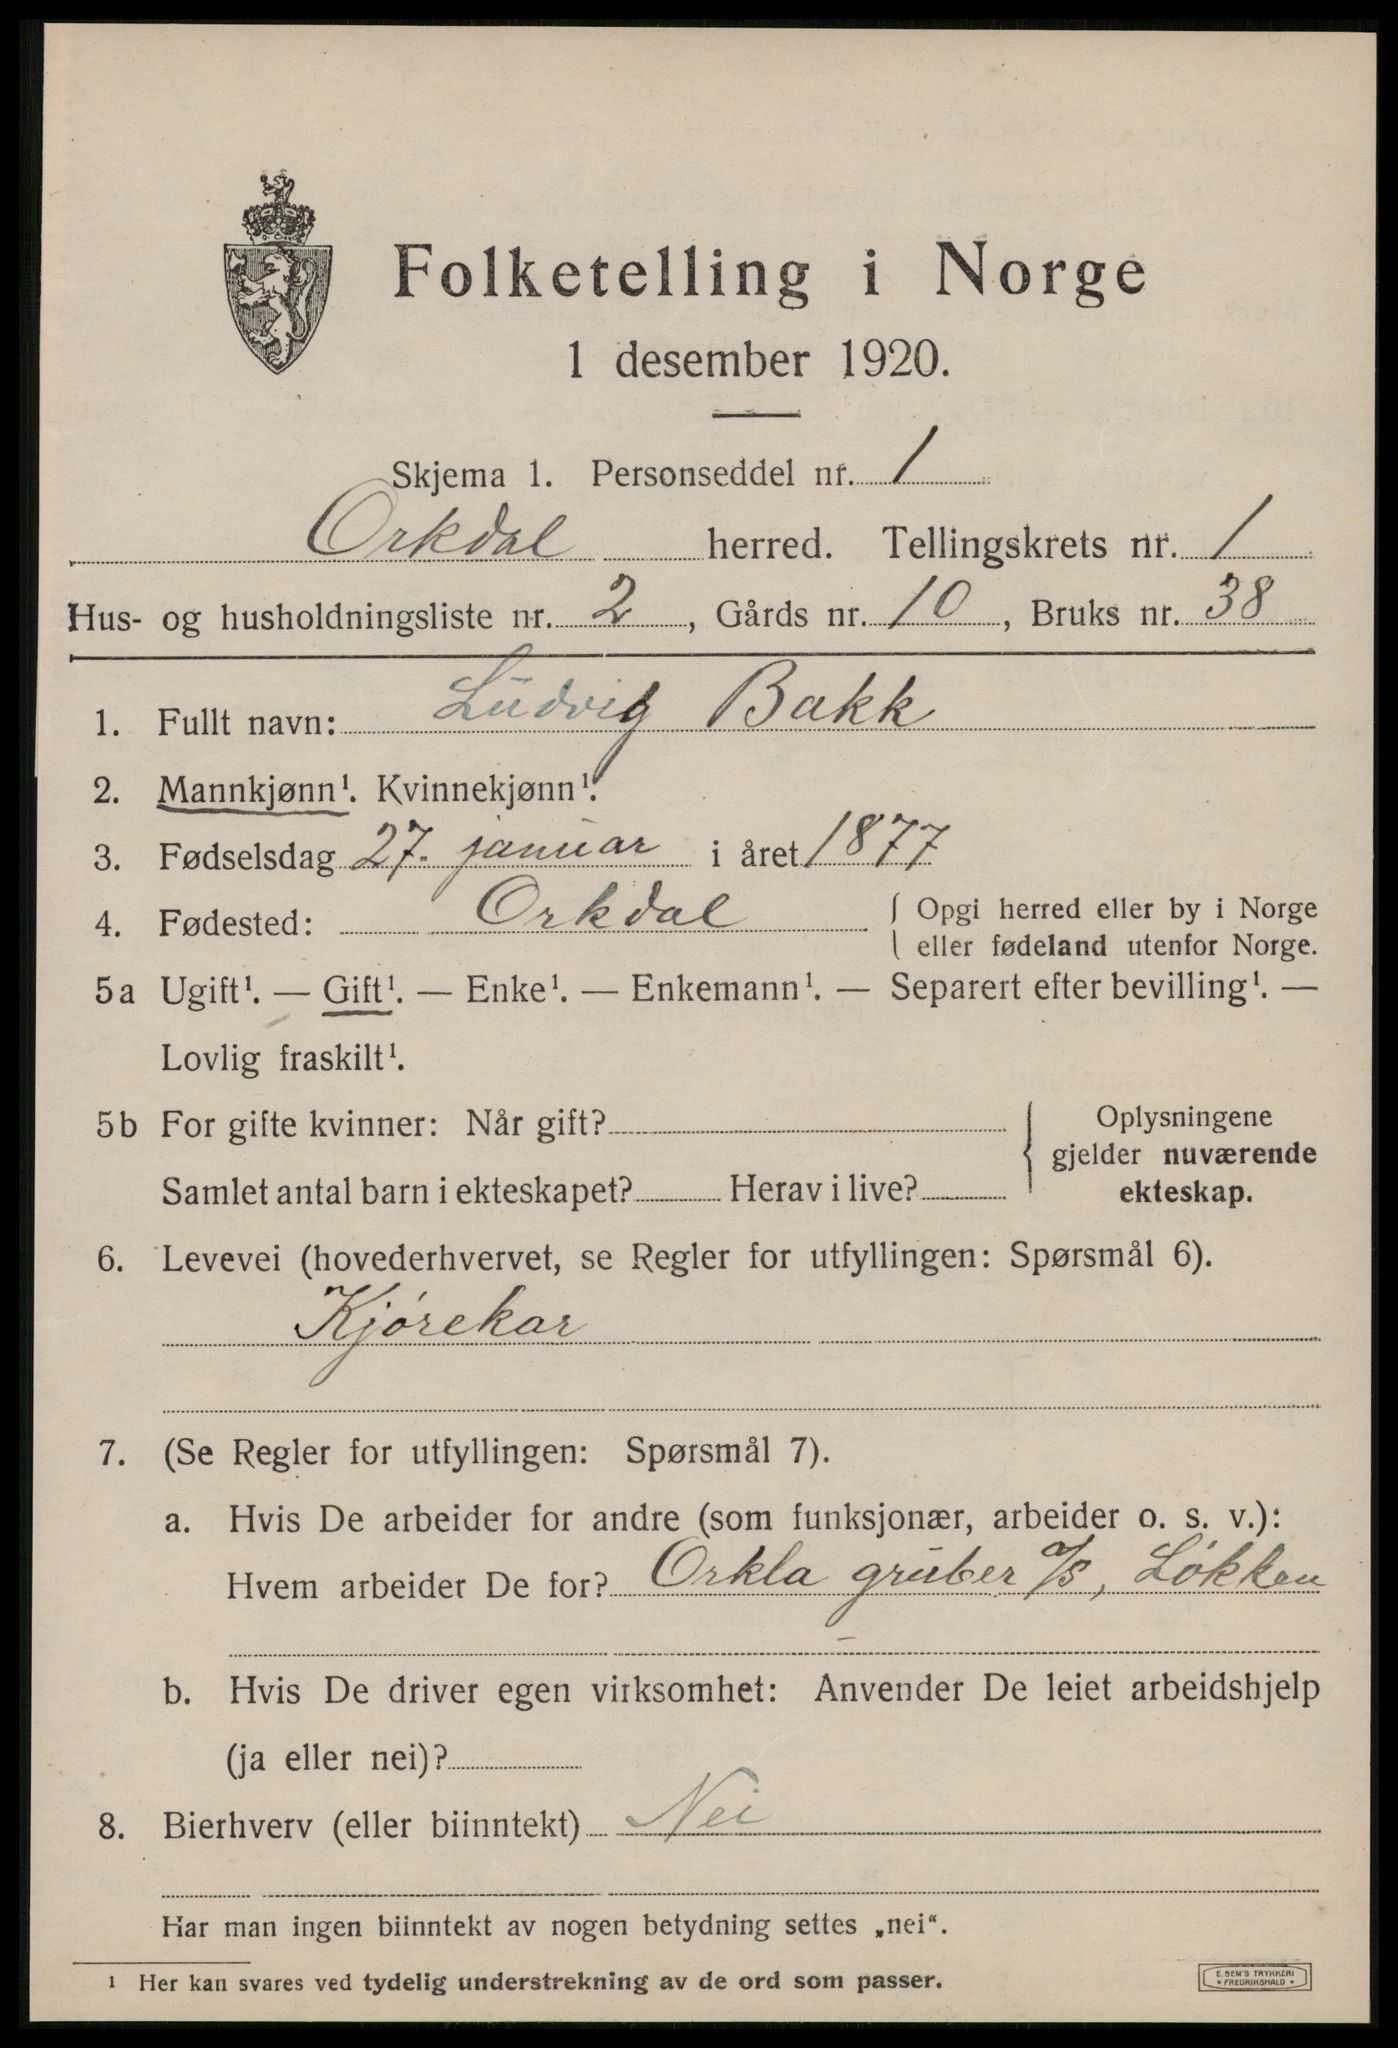 Folketelling i Norge
1 desember 1920.
Skjema 1. Personseddel nr. 1
Orkdal herred. Tellingskrets nr. 1
Hus- og husholdningsliste nr. 2, Gårds nr. 10, Bruks nr. 38
1. Fullt navn: Ludvig Bakk
2. Mannkjønn¹. Kvinnekjønn¹.
3. Fødselsdag 27. januar i året 1877
4. Fødested: Orkdal { Opgi herred eller by i Norge
eller fødeland utenfor Norge.
5a Ugift¹. — Gift¹. — Enke¹. — Enkemann¹. — Separert efter bevilling¹. —
Lovlig fraskilt¹.
5b For gifte kvinner: Når gift?
Samlet antal barn i ekteskapet? Herav i live?
{ Oplysningene
gjelder nuværende
ekteskap.
6. Levevei (hovederhvervet, se Regler for utfyllingen: Spørsmål 6).
Kjørekar
7. (Se Regler for utfyllingen: Spørsmål 7).
a. Hvis De arbeider for andre (som funksjonær, arbeider o. s. v.):
Hvem arbeider De for? Orkla gruber a/s, Løkken
b. Hvis De driver egen virksomhet: Anvender De leiet arbeidshjelp
(ja eller nei)?
8. Bierhverv (eller biinntekt) Nei
Har man ingen biinntekt av nogen betydning settes „nei“.
¹ Her kan svares ved tydelig understrekning av de ord som passer.
E. SEM'S TRYKKERI
• FREDRIKSHALD •